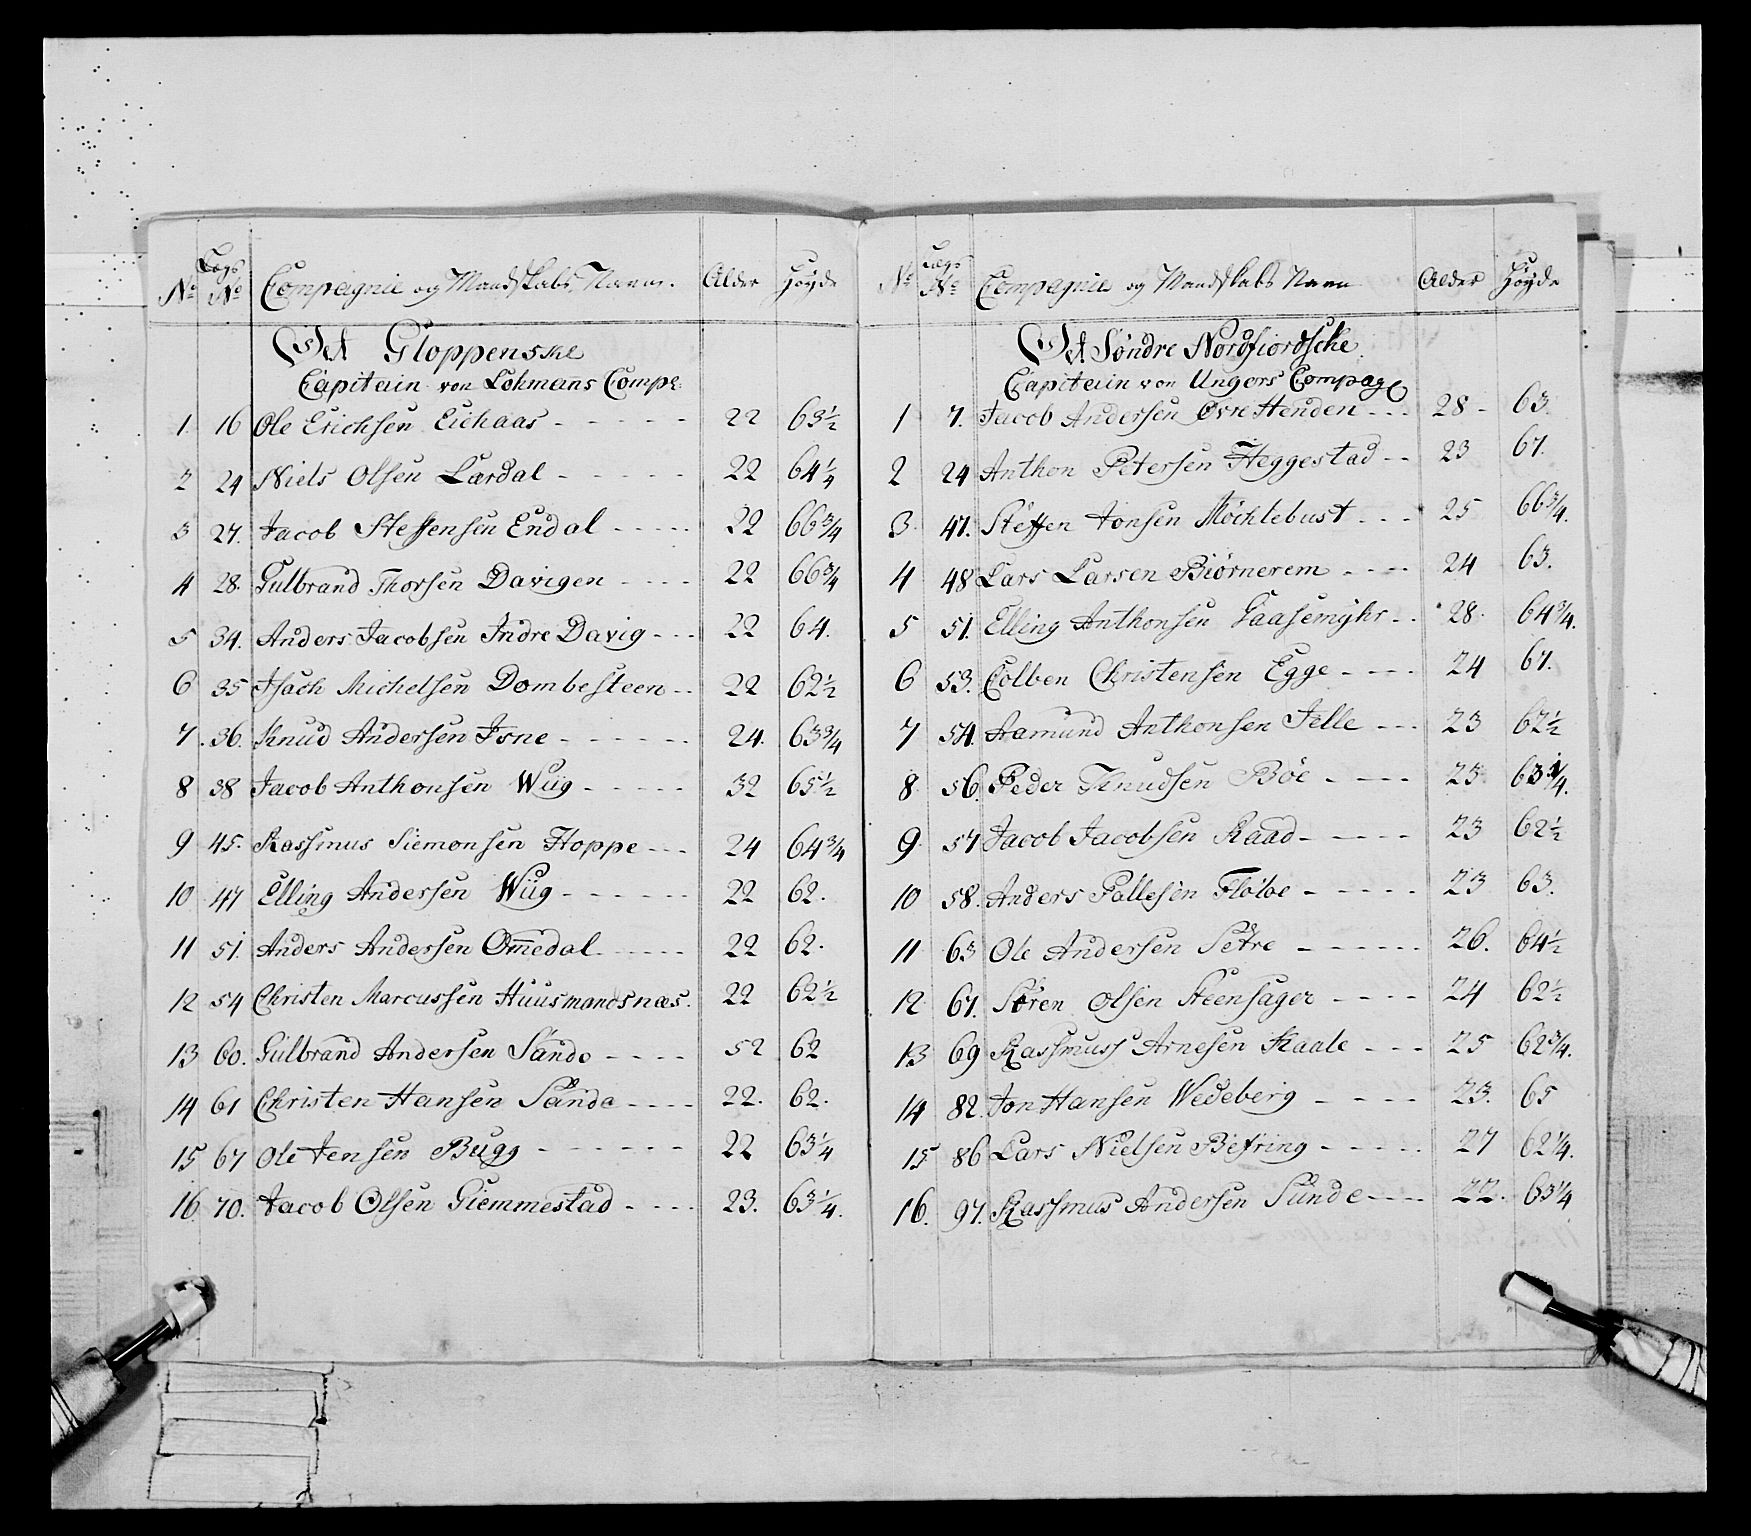 No Lægs No Compagnie og Mandskabs Navn. Alder Høyde
Det Gloppenske
Capitain von Lohmans Compe:
1. 16 Ole Erichsen Eichaas - - - - - 22 63½
2 24 Niels Olsen Lærdal - - - - - 22 64¼
3 27. Jacob Steffensen Endal - - - - - 22 66¾
4 28. Gulbrand Thorsen Davigen - - - - 22 66¾
5 34. Anders Jacobsen Indre Davig - - - 22 64.
6 35 Isach Michelsen Dombesteen - - 22 62½
7. 36. Knud Andersen Isne - - - - - - 24. 63¾
8 38 Jacob Anthonsen Wiig - - - - - 32 65½
9 45. Rassmus Siemonsen Hoppe - - - 24 64¾
10 47 Elling Andersen Wiig - - - - - - 22 62.
11 51. Anders Andersen Om̅edal - - - - - 22 62.
12 54 Christen Marcussen Huusmandsnæs. 22 62½
13 60. Gulbrand Andersen Sande - - - - 52 62
14 61 Christen Hansen Sande - - - - 22. 62.
15 67 Ole Jensen Bugg - - - - - - 22 63¼
16. 70. Jacob Olsen Giemmestad - - - - 23. 63¼.
No Lægs No Compagnie og Mandskabs Navn Alder Høyde
Det Søndre Nordfiordsche
Capitain von Ungers Compag
1 7. Jacob Andersen Øvre Henden - - - 28 - 63.
2 24 Anthon Petersen Heggestad - - 23 67.
3. 47. Steffen Jonsen Møchlebust - - - 25 66¾.
4 48 Lars Larsen Biørnerem - - - - 24 63.
5 51. Elling Anthonsen Gaasemyhr - - 28. 64¾.
6 53. Colben Christensen Egge - - - - 24 67.
7 54. Aamund Anthonsen Felle - - - 23 62½
8. 56. Peder Knudsen Bøe - - - - 25 63¼.
9 57 Jacob Jacobsen Raad - - - - - 23 62½
10 58. Anders Pallesen Fløloe - - - - - 23 63.
11 63 Ole Andersen Setre - - - - - - 26. 64½
12 67. Søren Olsen Steensager - - - - 24 62½
13 69 Rassmuss Arnesen Kaale - - - 25 62¾.
14 82. Jon Hansen Wedeberg - - - - 23. 65
15 86 Lars Nielsen Betring - - - - - 27 62¼.
16. 97. Rassmus Andersen Sunde - - - - 22. 63¼